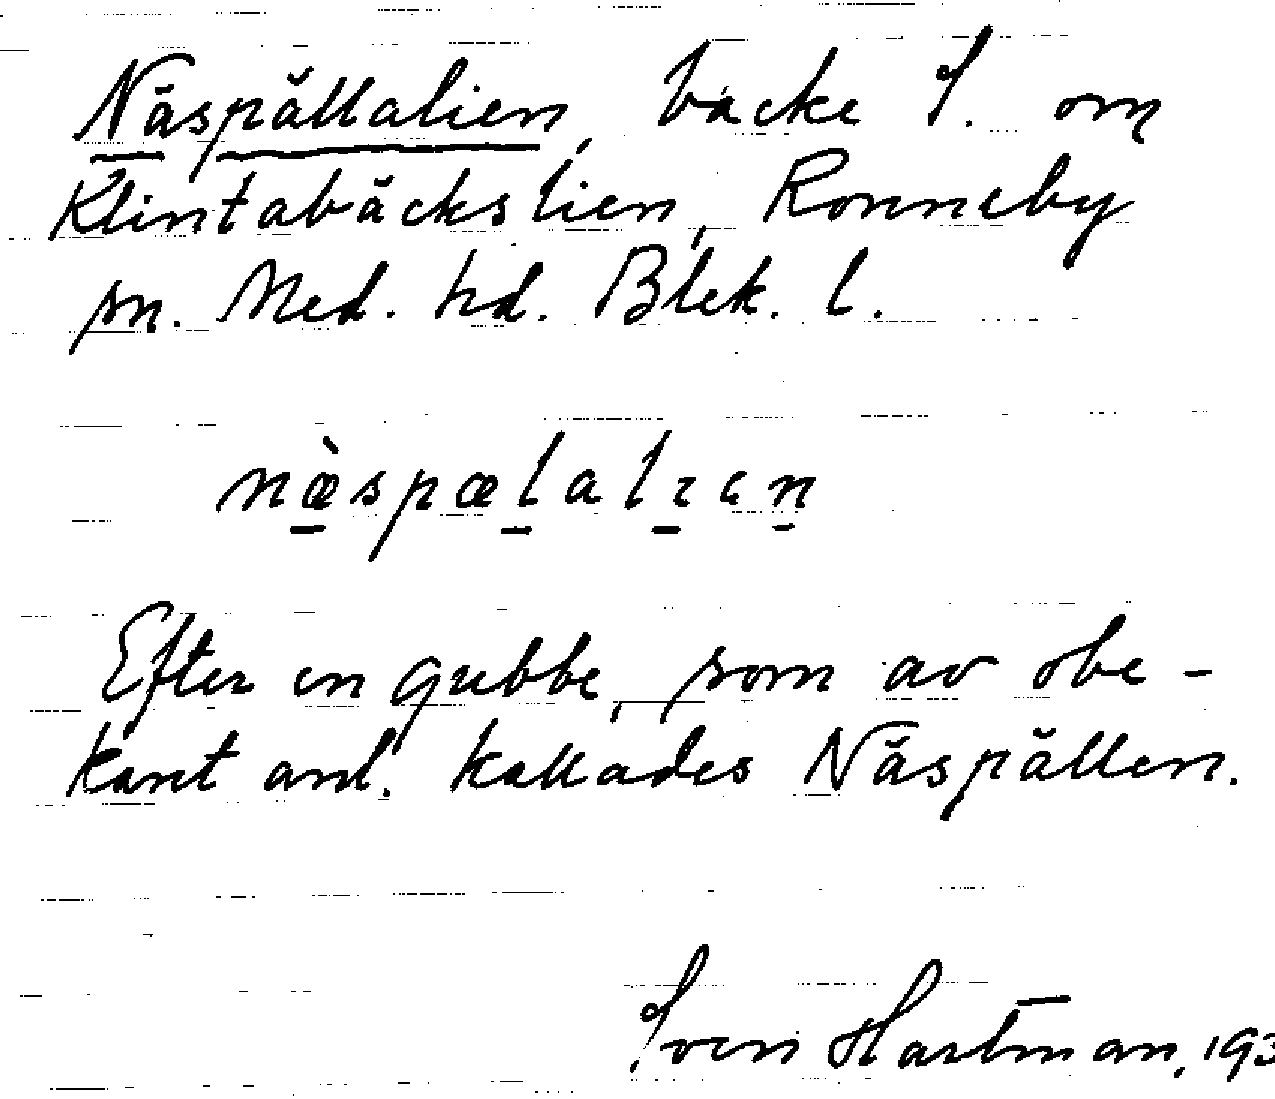 Näspällalien, backe S. om
Klintabäckslien, Ronneby
sn. Med. hd. Blek. l.
næ̀spælalɪan
Efter en gubbe, som av obe-
kant anl. kallades Näspällen.
Sven Hartman, 193